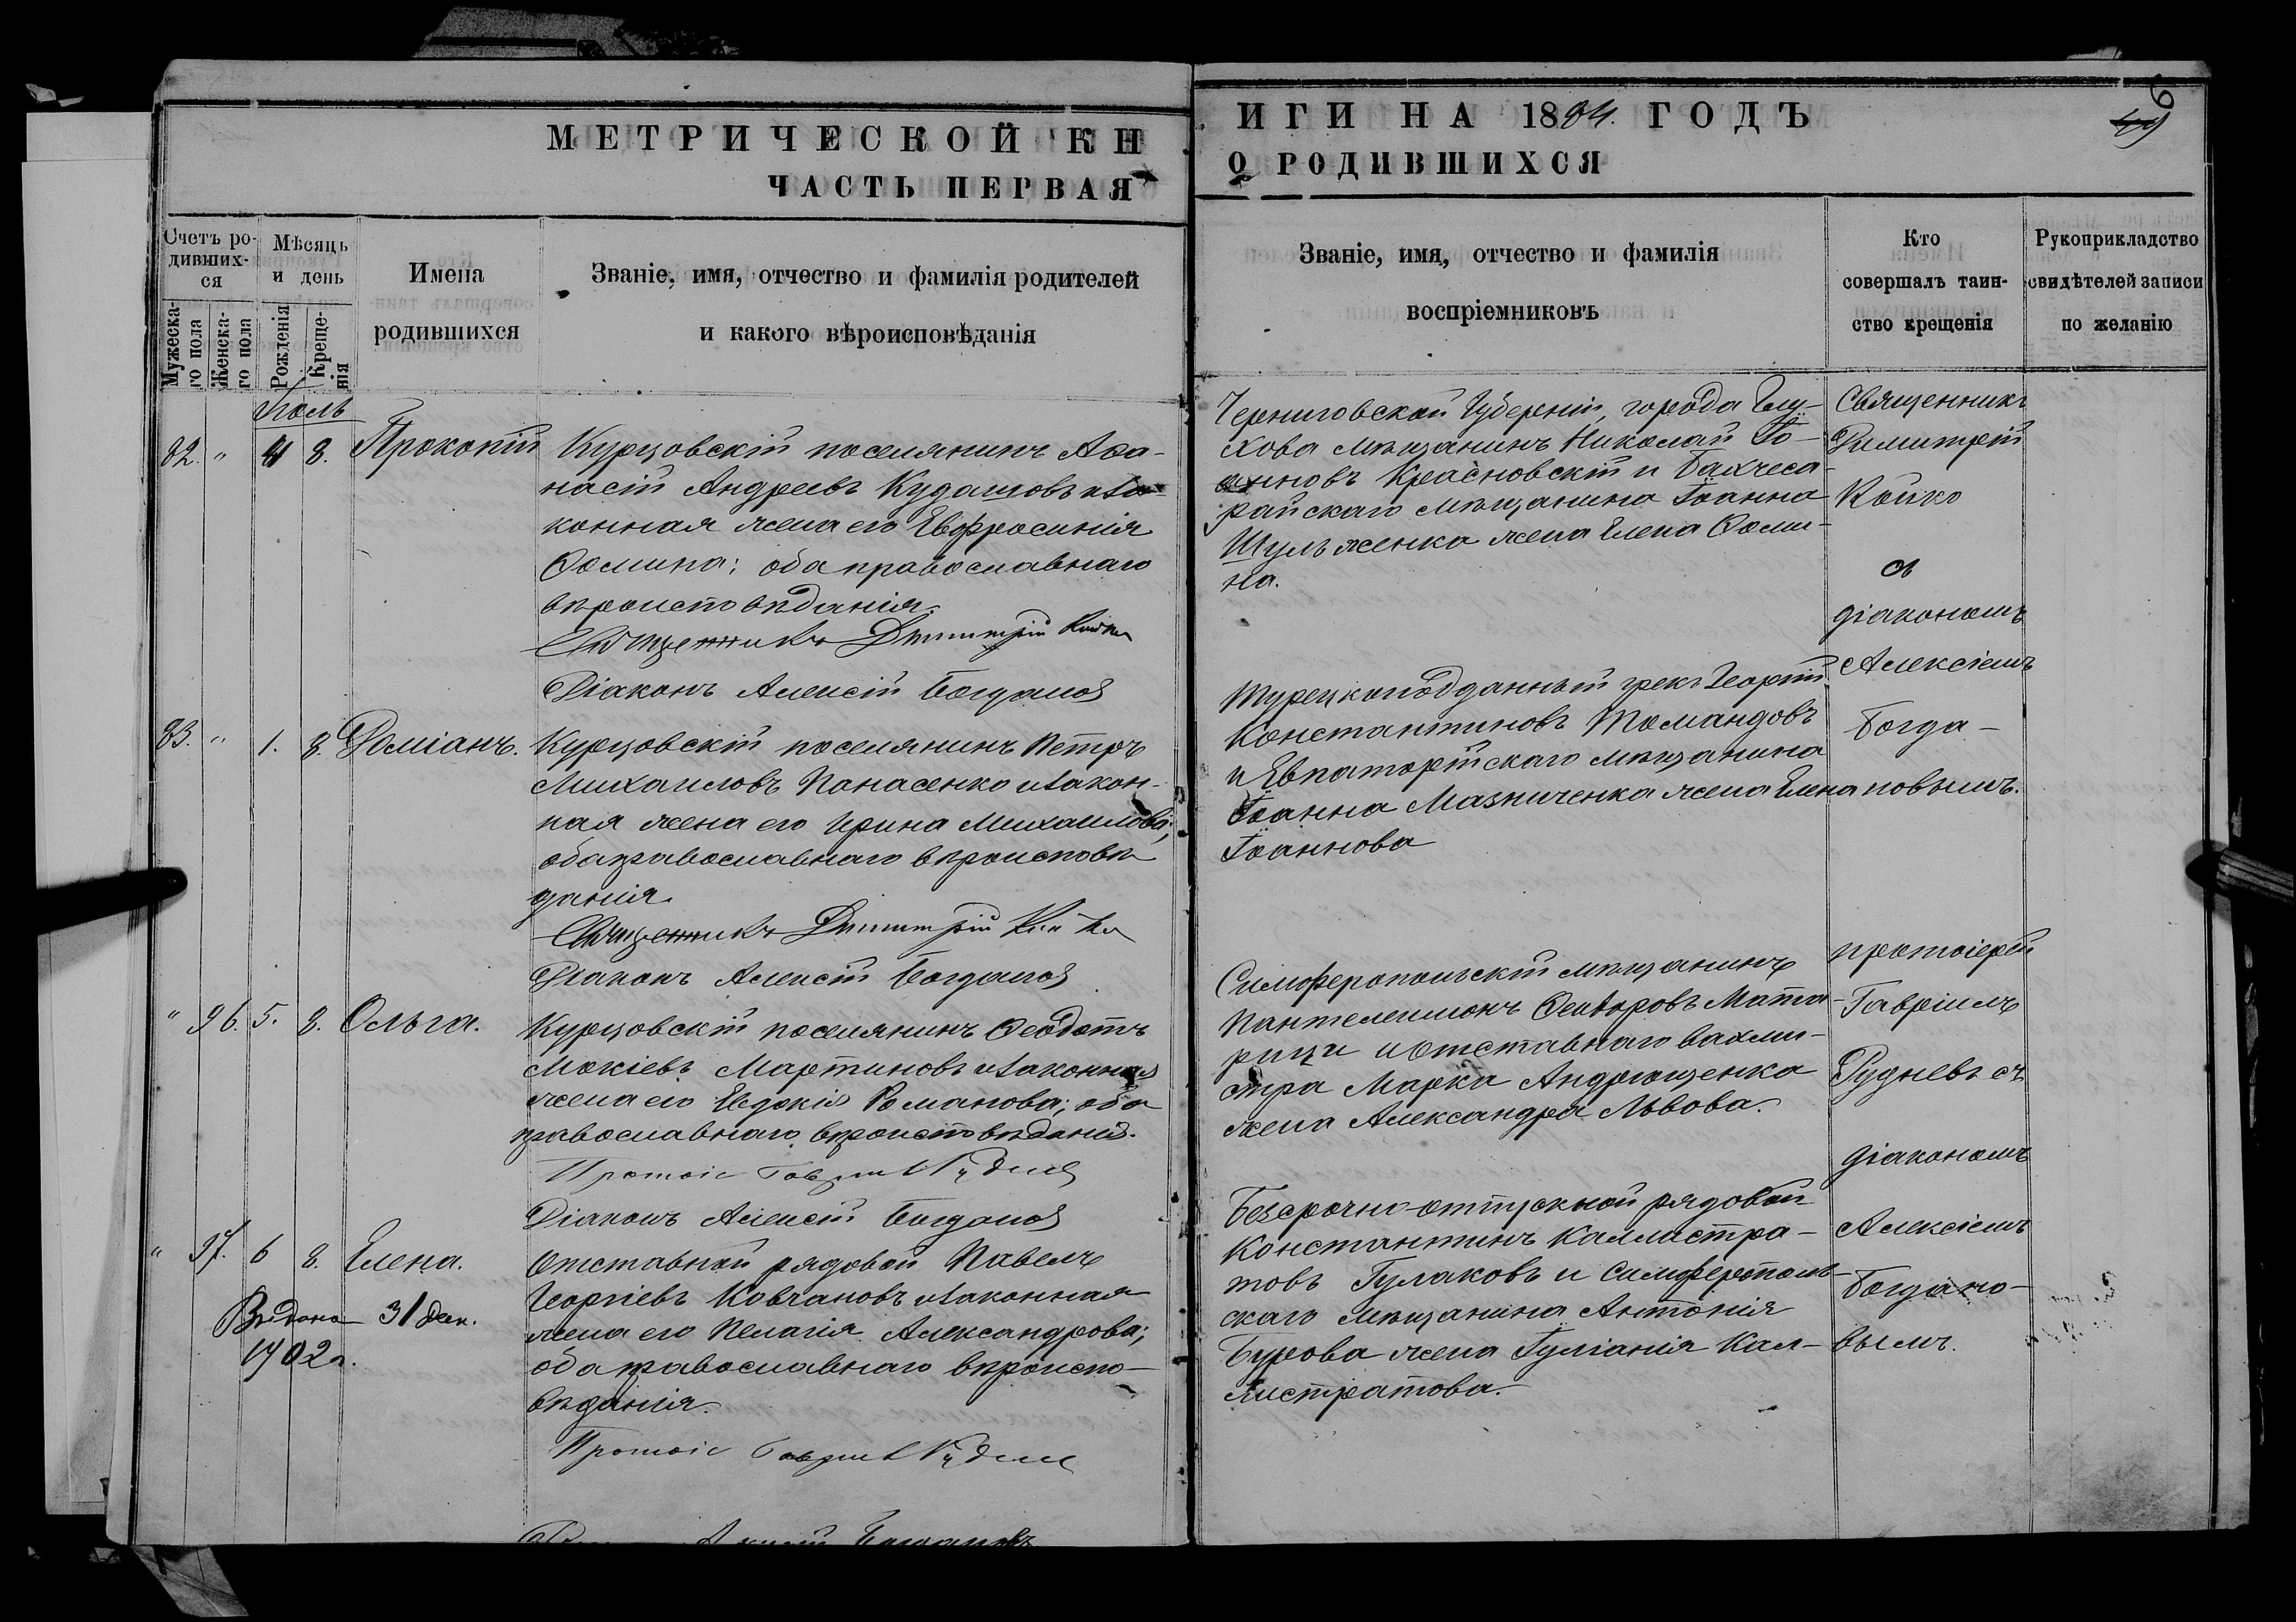 МЕТРИЧЕСКОЙ КН
ИГИ НА 1884. ГОДЪ
ЧАСТЬ ПЕРВАЯ
О РОДИВШИХСЯ
6
49
Счетъ ро-
дивших-
ся
Мужеска-
го пола
Женска-
го пола
Мѣсяць
и день
Рожденія
Креще-
нія
Имена
родившихся
Званіе, имя, отчество и фамилія родителей
и какого вѣроисповѣданія
Званіе, имя, отчество и фамилія
воспріемниковъ
Кто
совершалъ таин-
ство крещенія
Рукоприкладство
свидѣтелей записи
по желанію
Іюль
82. " 8. Прокопій
Курцовскій поселянинъ Аѳа-
насій Андреевъ Кудашовъ и за-
конная жена его Евфросинія
Ѳомина; оба православнаго
вѣроисповѣданія.
Священникъ Димитрій Койко
Діаконъ Алексій Богданов
Черниговской Губерніи, города Глу-
хова мѣщанинъ Николай Іо-
анновъ Красновскій и Бахчеса-
райскаго мѣщанина Іоанна
Шульженка жена Елена Ѳоми-
на.
Священникъ
Димитрій
Койко
съ
діакономъ
Алексіемъ
Богда-
новымъ.
83. " 1. 8. Доміанъ.
Курцовскій поселянинъ Петръ
Михаиловъ Панасенко и закон-
ная жена его Ирина Михаилова;
оба православнаго вѣроисповѣ
данія.
Священникъ Димитрій Койко
Діаконъ Алексій Богданов
Турецкоподданный грекъ Георгій
Константиновъ Томандовъ
и Евпаторійскаго мѣщанина
Іоанна Мазниченка жена Елена
Іоаннова
" 96. 5. 8. Ольга.
Курцовскій поселянинъ Ѳеодотъ
Мокіевъ Мартиновъ и законная
жена его Евдокія Романова; оба
православнаго вѣроисповѣданія.
Протоіе Гавріил Руднев
Діаконъ Алексій Богданов
Симферопольскій мѣщанинъ
Пантелеимонъ Ѳеодоровъ Мата-
рици и отставнаго вахми-
стра Марка Андрющенка
жена Александра Львова.
протоіерей
Гавріилъ
Рудневъ съ
діакономъ
Алексіемъ
Богдано-
вымъ.
" 97. 6 8. Елена.
Выдано 31 дек.
1902 г.
Отставной рядовой Павелъ
Георгіевъ Ковчановъ и законная
жена его Пелагія Александрова;
оба православнаго вѣроиспо-
вѣданія.
Протоіе Гавріил Руднев
Алексій Богдановъ
Безсрочно-отпускной рядовой
Константинъ Каллистра-
товъ Гулаковъ и Симферополь-
скаго мѣщанина Антонія
Бурова жена Іуліанія Кал-
листратова.